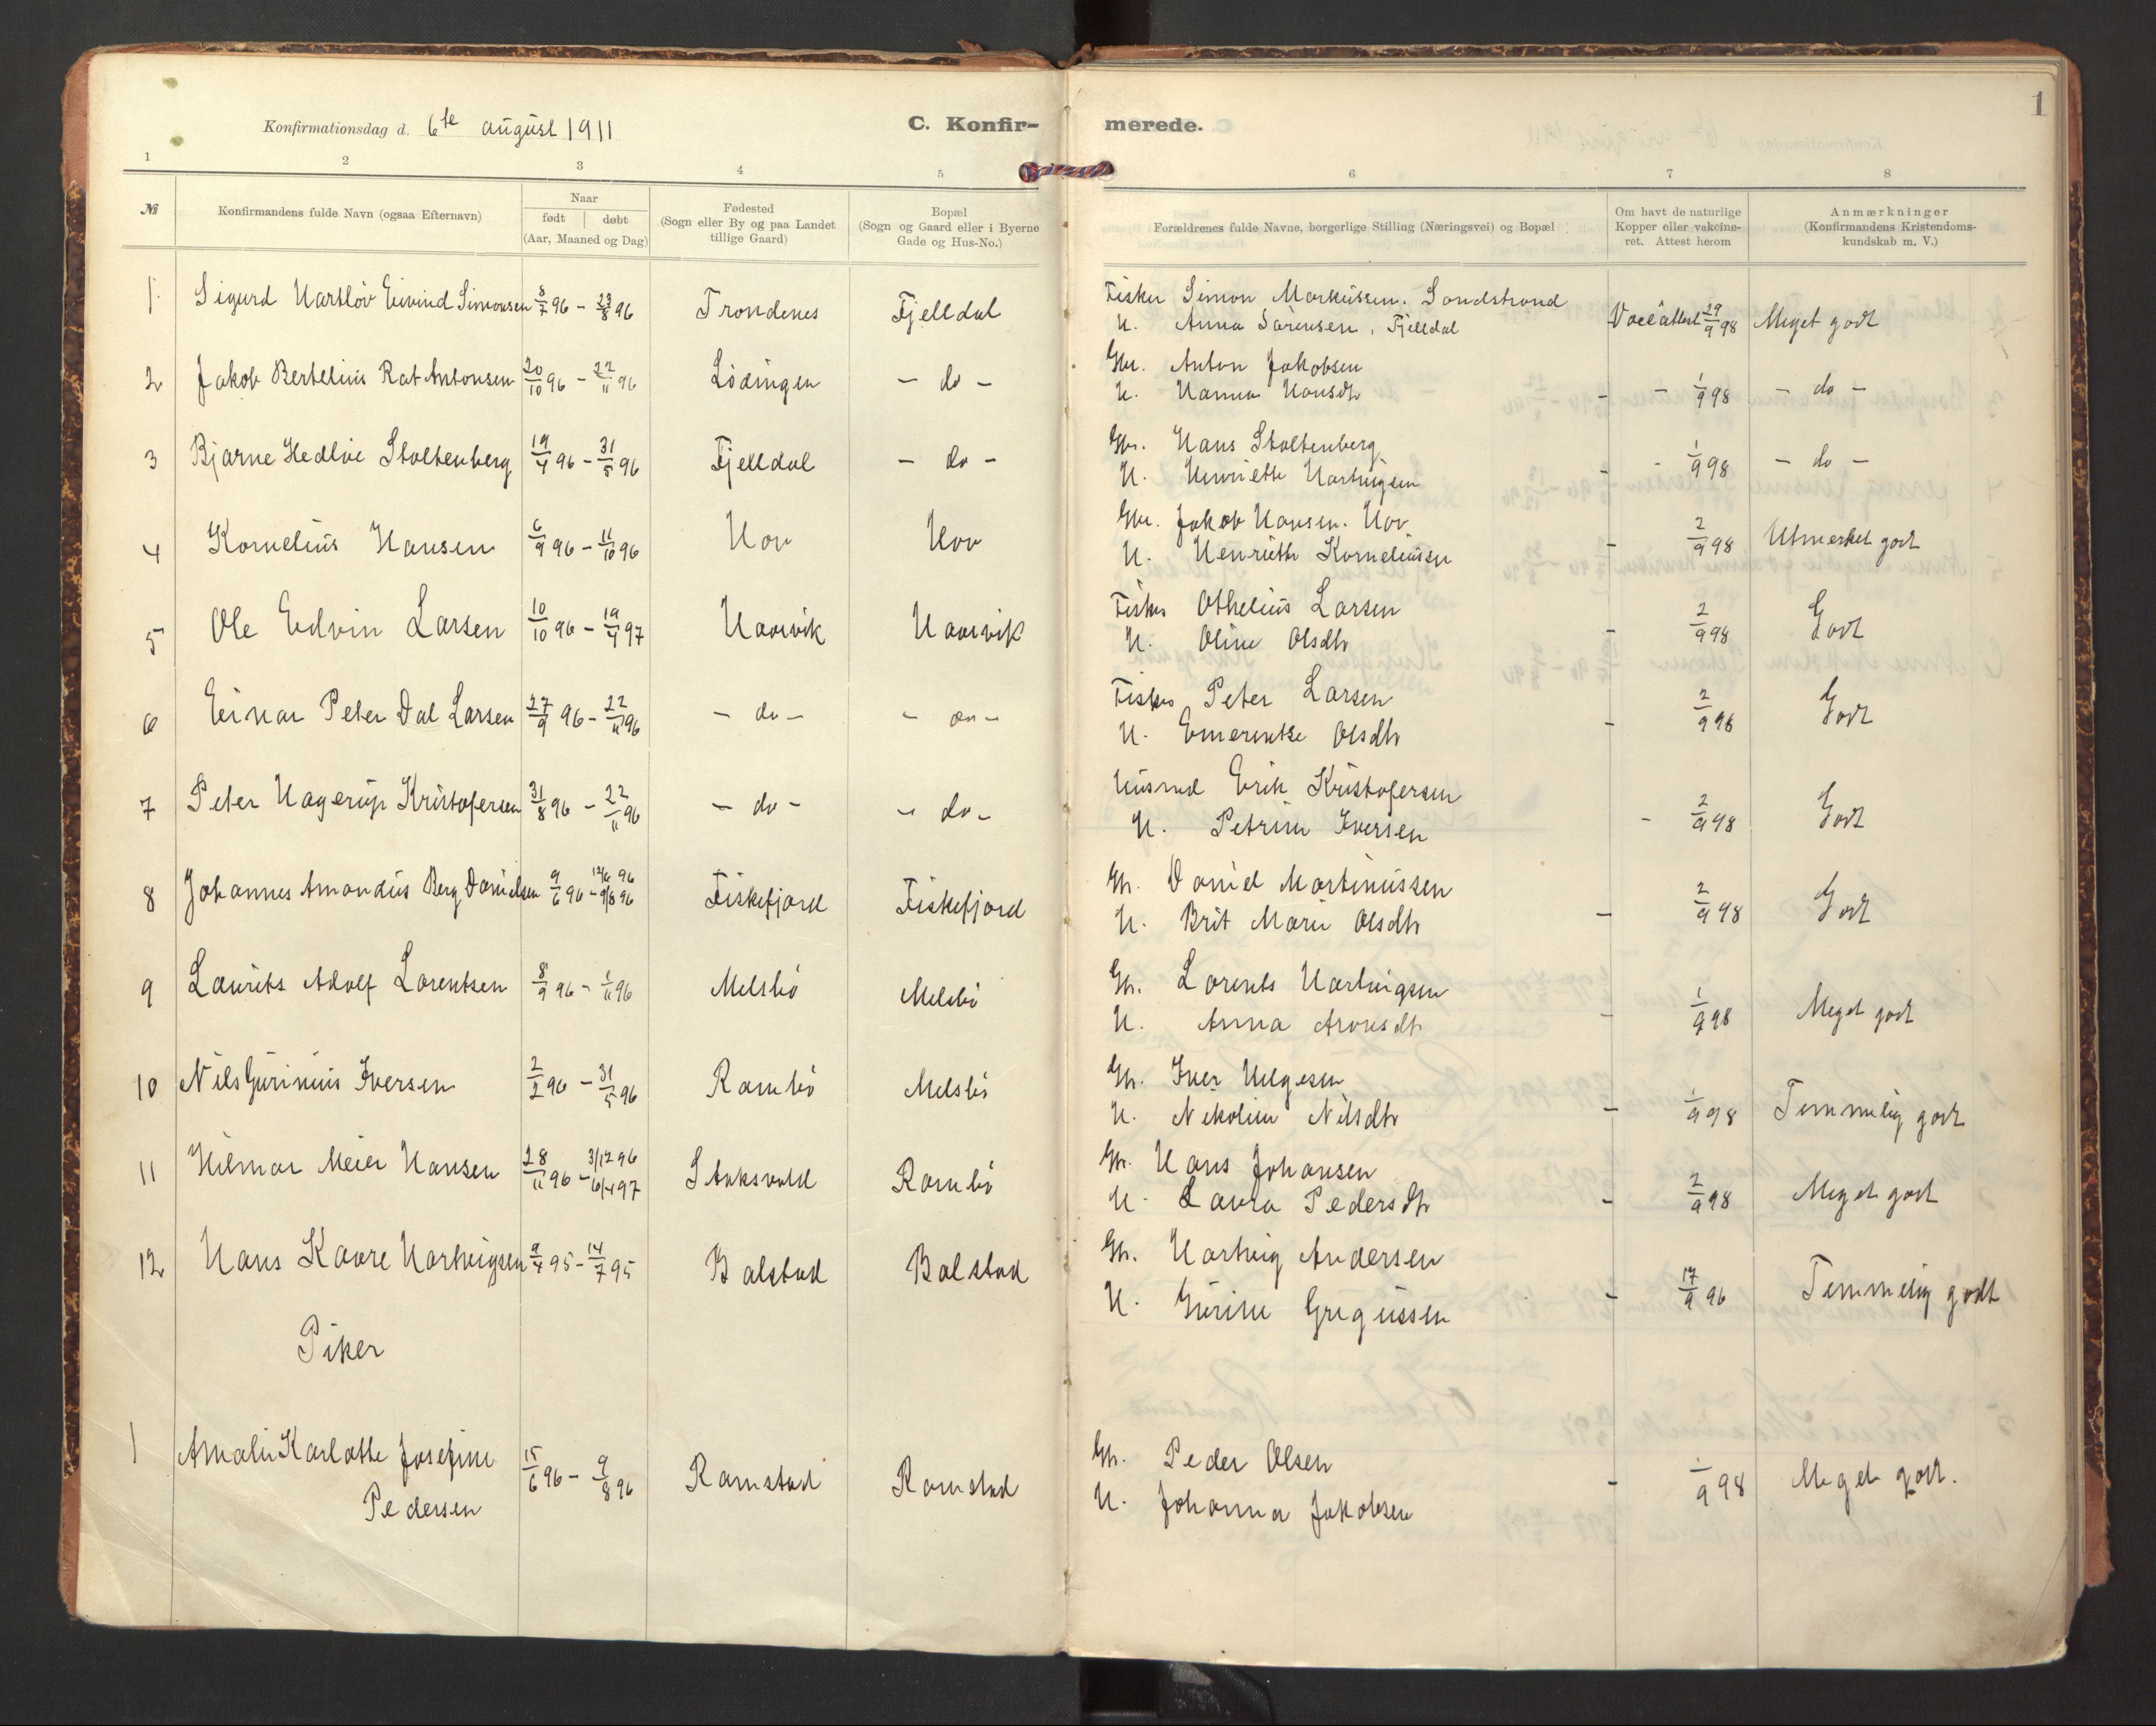 1
Konfirmationsdag d. 6te august 1911
C. Konfir-
merede.
1 2 3 4 5
6 7 8
№
Konfirmandens fulde Navn (ogsaa Efternavn)
Naar
født døbt
(Aar, Maaned og Dag)
Fødested
(Sogn eller By og paa Landet
tillige Gaard)
Bopæl
(Sogn og Gaard eller i Byerne
Gade og Hus-No.)
Forældrenes fulde Navne, borgerlige Stilling (Næringsvei) og Bopæl
Om havt de naturlige
Kopper eller vakcine-
ret. Attest herom
Anmærkninger
(Konfirmandens Kristendoms-
kundskab m. V.)
1. Sigurd Hartløv Eivind Simonsen 8/7 96 - 23/8 96 Trondenes Fjelldal
Fisker Simon Markussen. Sandstrand
H. Anna Sørensen, Fjelldal
29/9 98 Meget godt
2 Jakob Bertelius Rat Antonsen 20/10 96 - 22/11 96 Lødingen - do -
Gbr. Anton Jakobsen
H. Hanna Hansdtr
- - 1/9 98 - do -
3 Bjarne Hedlöe Stoltenberg 19/4 96 - 31/5 96 Fjelldal - do -
Gbr. Hans Stoltenberg
H. Henriette Hartvigsen
- - 1/9 98 - do -
4 Kornelius Hansen 6/9 96 - 11/10 96 Hov Hov
Gbr. Jakob Hansen. Hov
H. Henriette Korneliussen
- 2/9 98 Utmerket godt
5 Ole Edvin Larsen 10/10 96 - 19/4 97 Haarvik Haarvik
Fisker Othelius Larsen
H. Oline Olsdtr
- 2/9 98 Godt
6 Einar Peter Dal Larsen 27/9 96 - 22/11 96 - do - - do -
Fisker Peter Larsen
H. Emerentse Olsdtr
- 2/9 98 Godt
7 Peter Hagerup Kristofersen 31/8 96 - 22/11 96 - do - - do -
Husmd Erik Kristofersen
H. Petrine Iversen
- 2/9 98 Godt
8 Johannes Amandus Berg Danielsen 9/6 96 - 12/6 96 9/8 96 Fiskefjord Fiskefjord
Gbr. Daniel Martinussen
H. Brit Marie Olsdtr
- 2/9 98 Godt
9 Laurits Adolf Lorentsen 8/9 96 - 1/11 96 Melsbö Melsbö
Gbr. Lorents Hartvigsen
H. Anna Aronsdtr
- 1/9 98 Meget godt
10 Nils Gurinius Iversen 2/2 96 - 31/5 96 Rambö Melsbö
Gbr. Iver Helgesen
H. Nikoline Nilsdtr
- 1/9 98 Temmelig godt
11 Hilmar Meier Hansen 28/11 96 - 3/12 96 6/4 97 Staksvold Rambö
Gbr. Hans Johansen
H. Laura Pedersdtr
- 2/9 98 Meget godt
12 Hans Kaare Hartvigsen 9/4 95 - 14/7 95 Balstad Balstad
Gbr. Hartvig Andersen
H. Gurine Gregussen
- 17/9 96 Temmelig godt
Piker
1 Amalie Karlotte Josefine
Pedersen 15/6 96 - 9/8 96 Ramstad Ramstad
Gbr. Peder Olsen
H. Johanna Jakobsen
- 1/9 98 Meget godt.